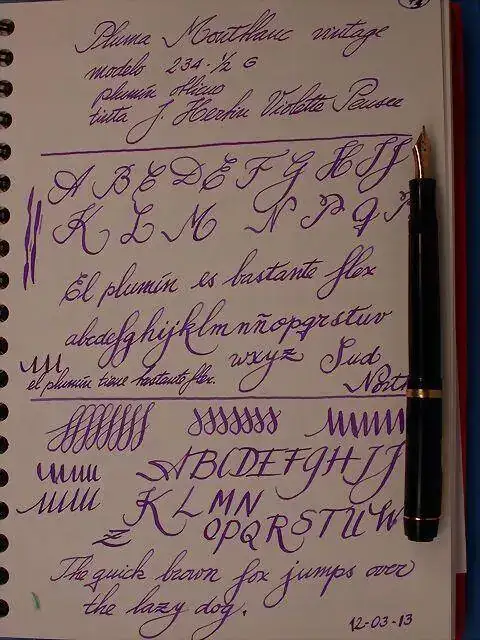 Pluma Montblanc vintage
modelo 234·½ G
plumín oblicuo
tinta J. Herbin Violette Pensee
A B C D E F G H I J
K L M N P Q R
El plumín es bastante flex
abcdefghijklmnñopqrstuv
wxyz Sud
el plumín tiene bastante flex. North
A B C D E F G H I J
K L M N
O P Q R S T U W
Z
The quick brown fox jumps over
the lazy dog.
12-03-13